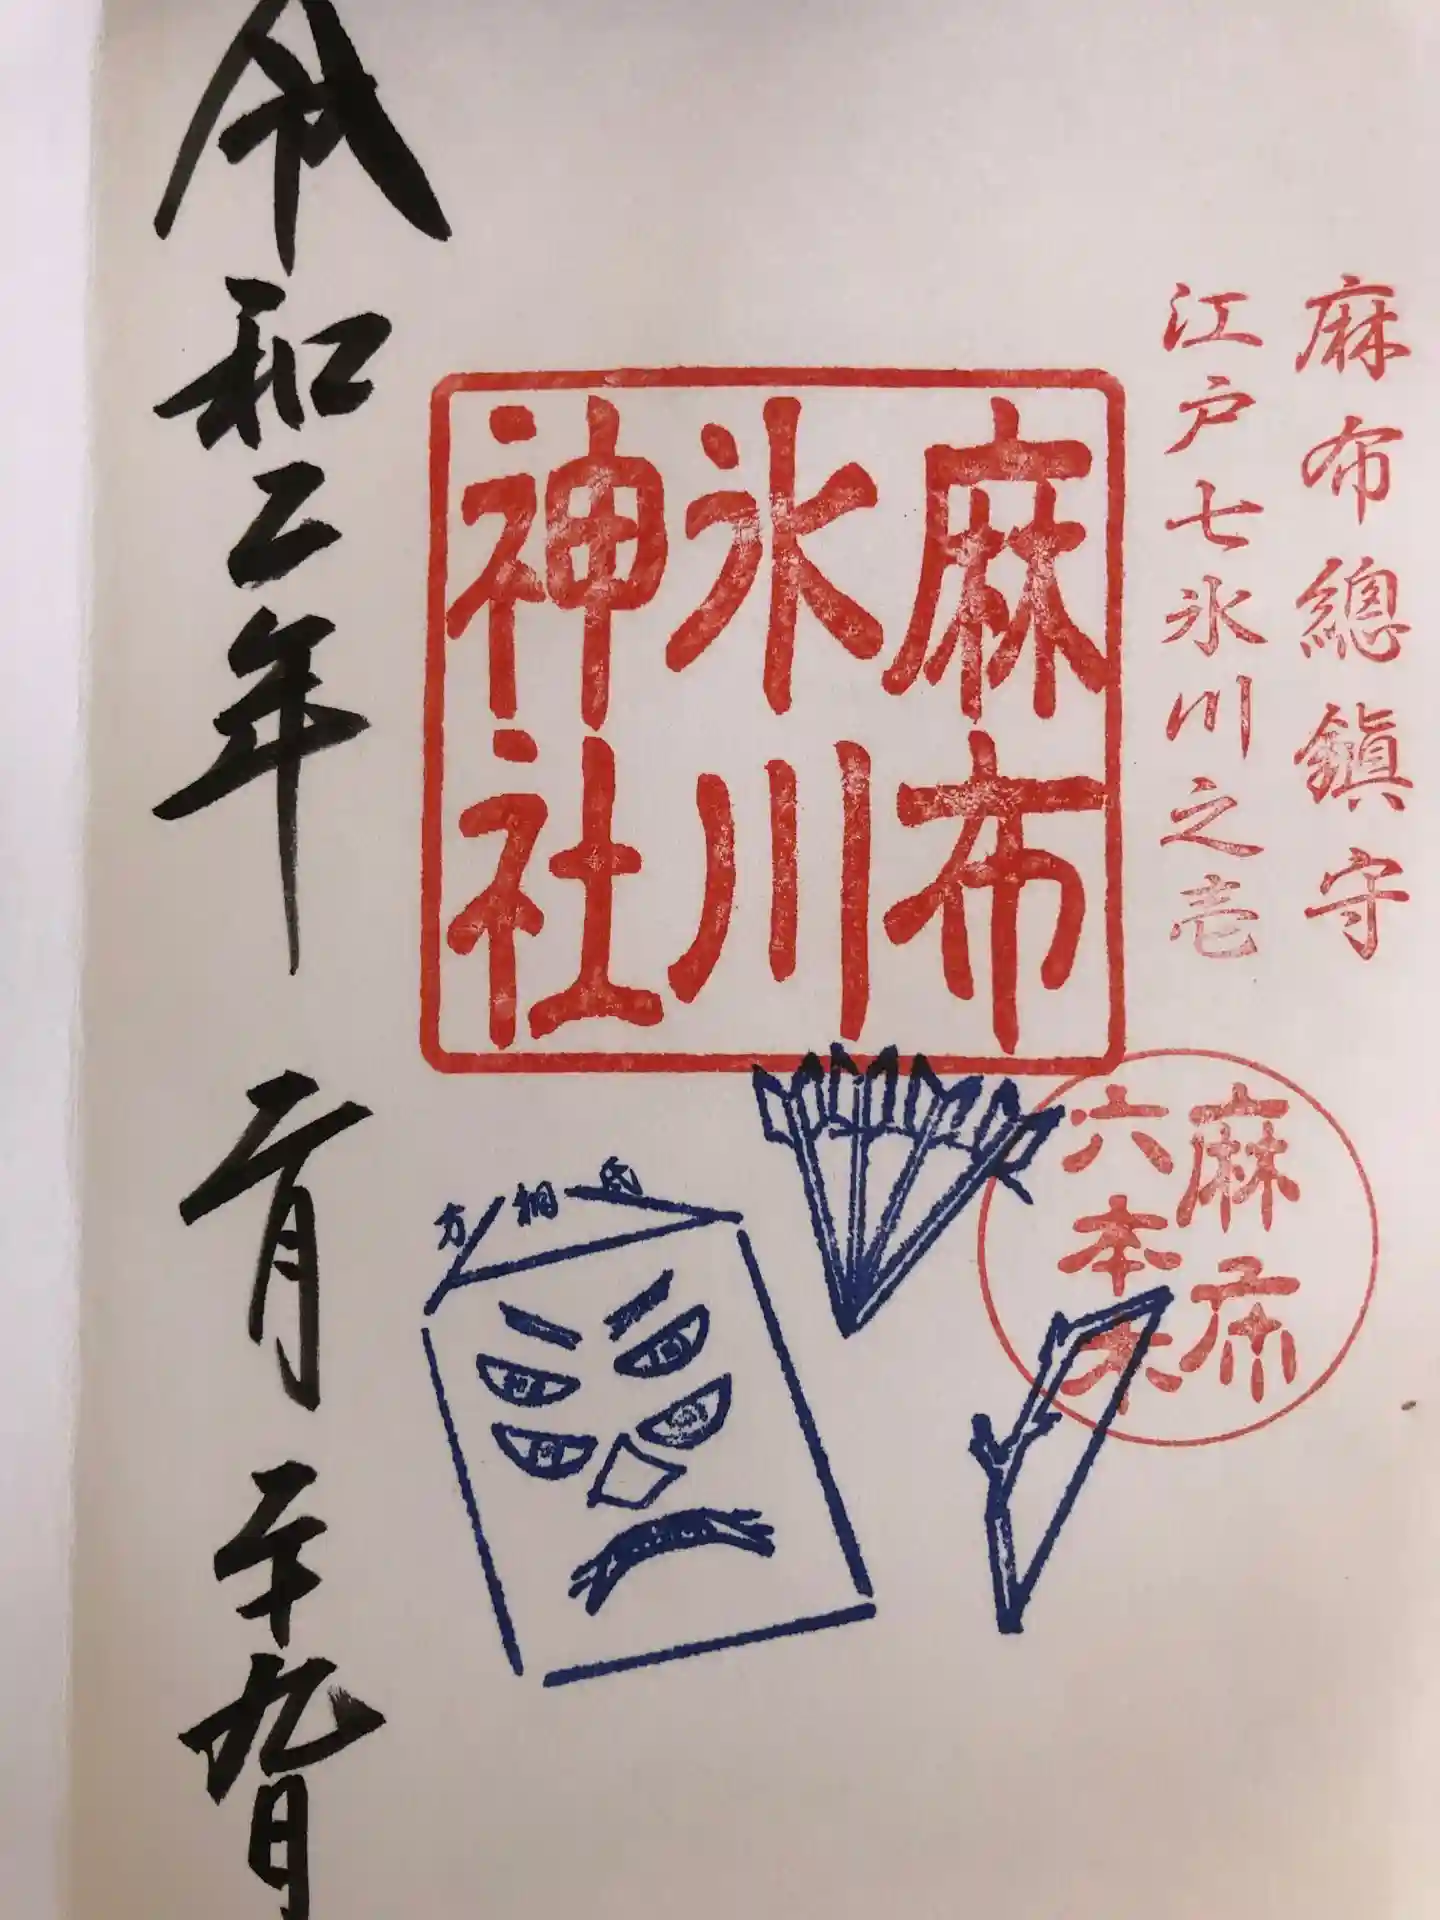 麻布總鎮守
江戸七氷川之壱
麻布
氷川
神社
麻布
六本木
方相氏
令和二年 二月 二十九日